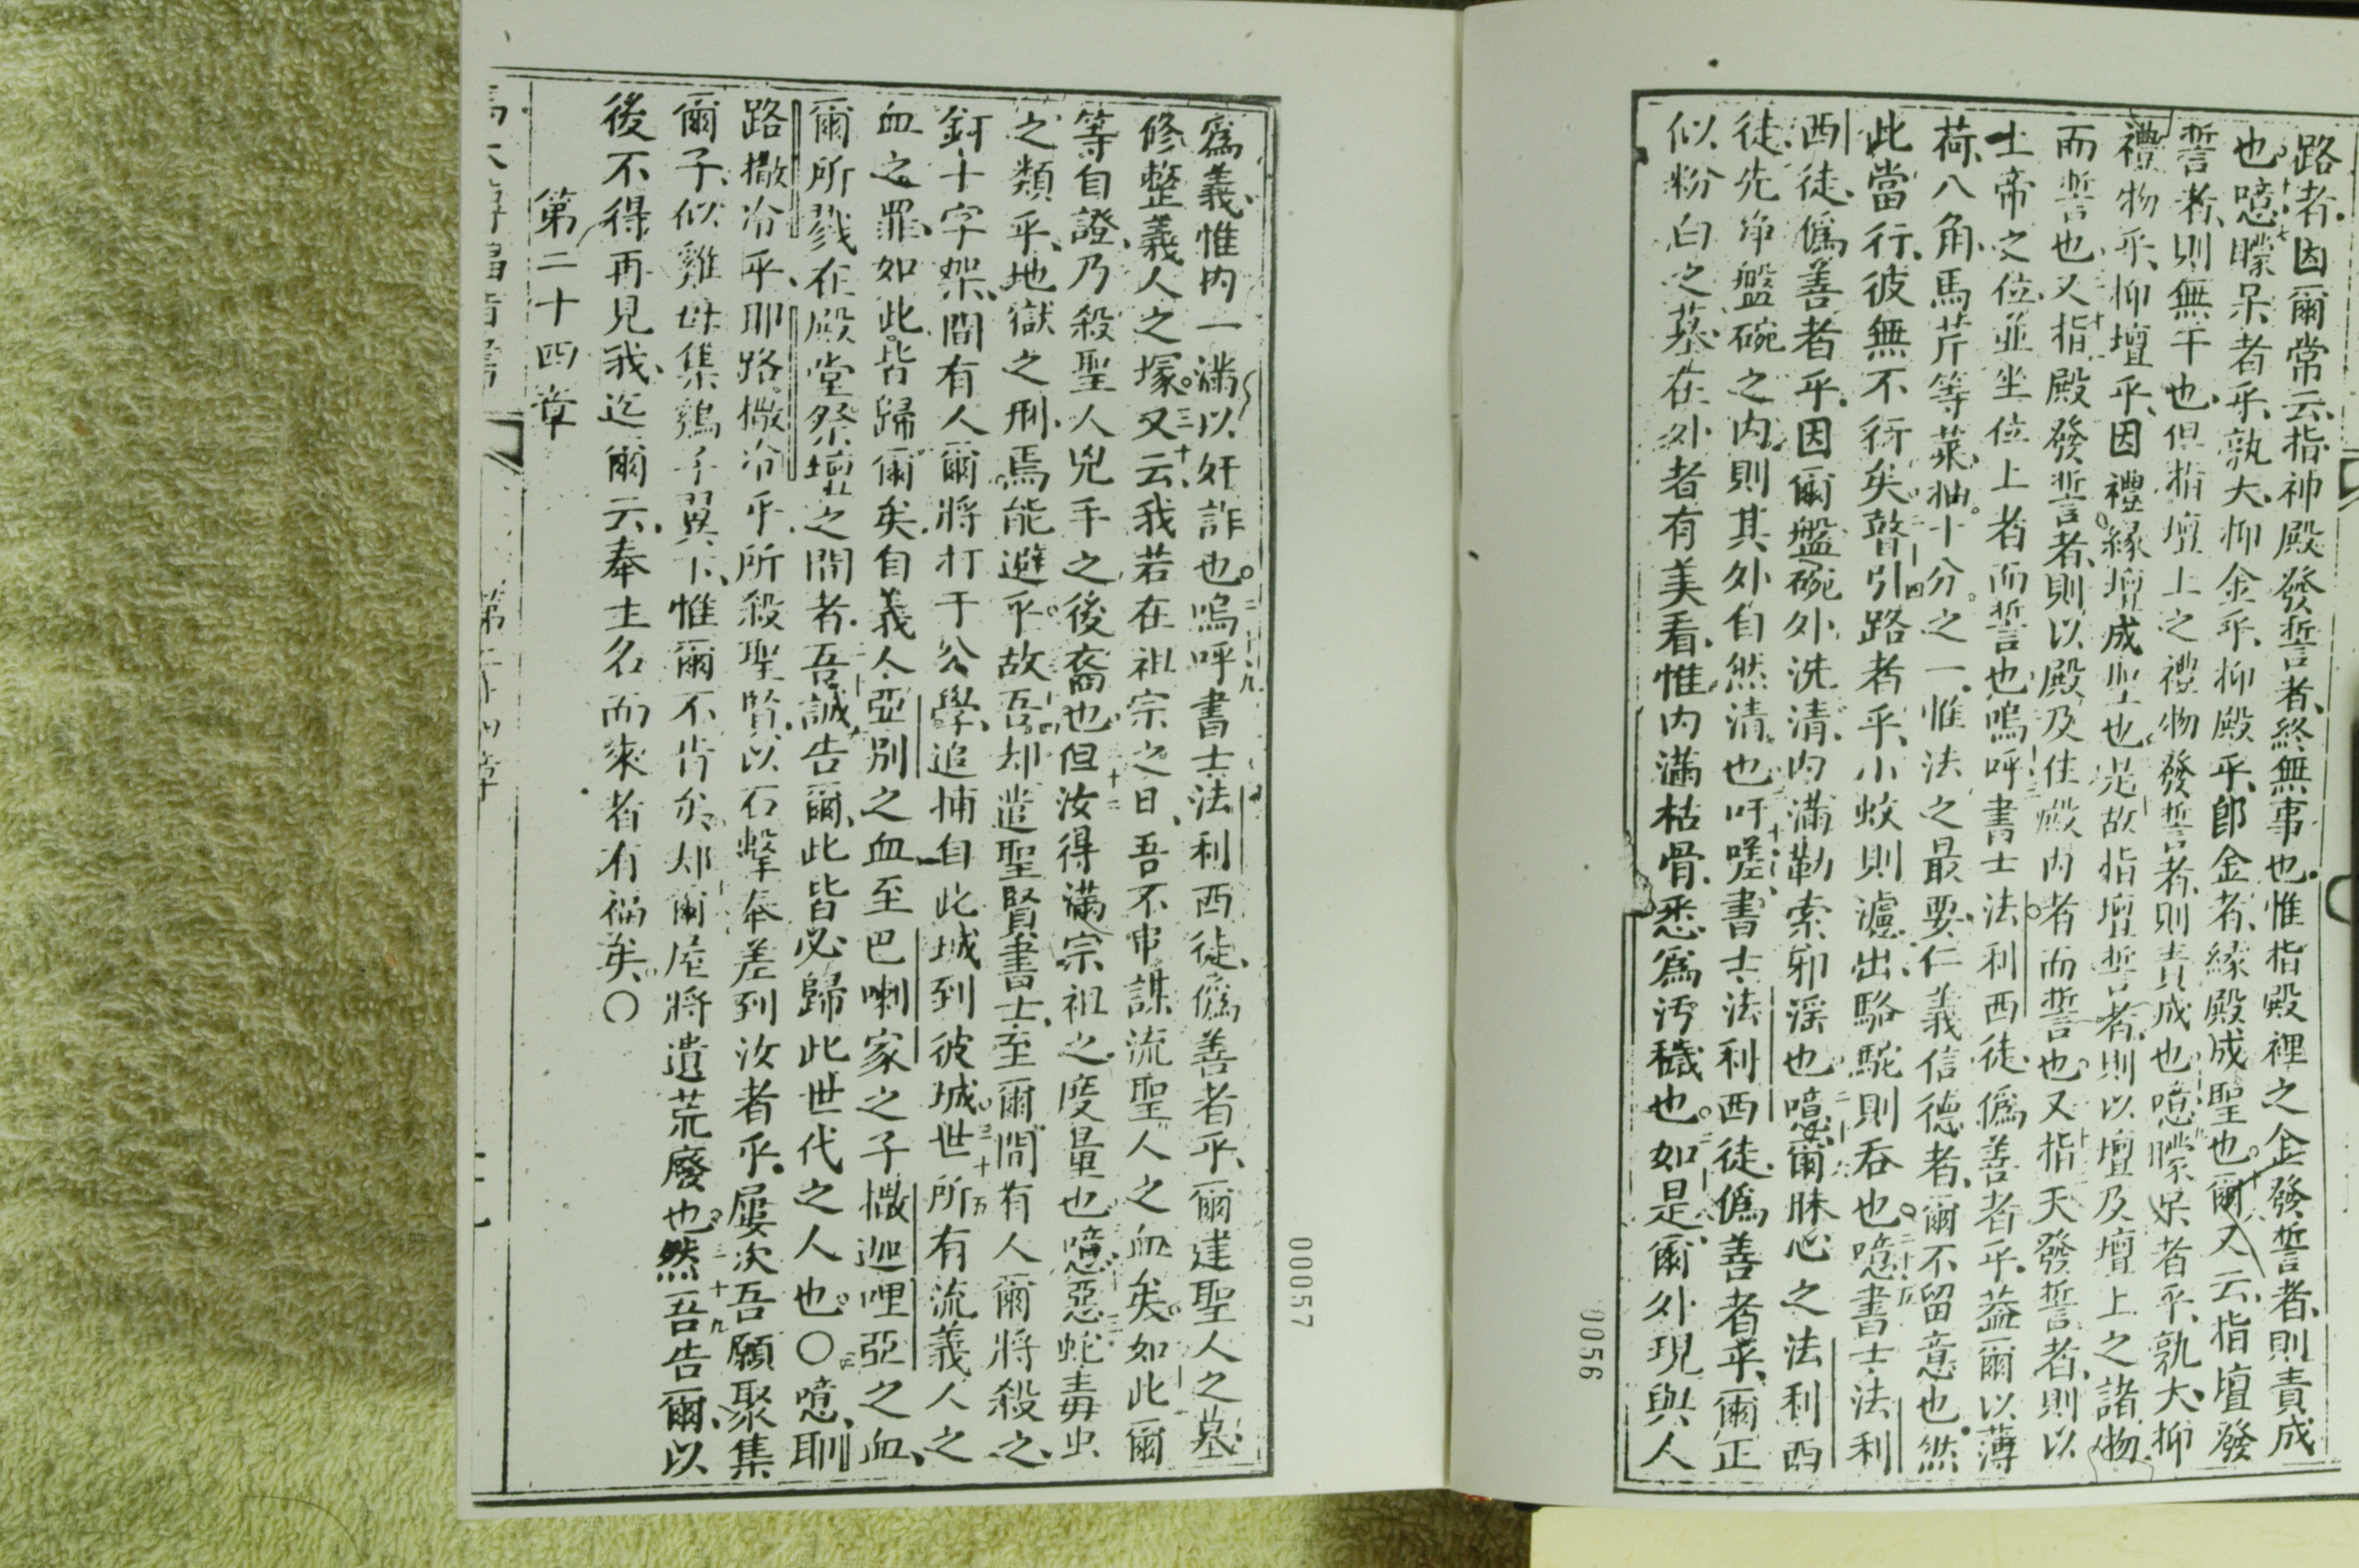 路者因爾常云指神殿發誓者終無事也惟指殿裡之金發誓者則責成
也噫矇呆者乎孰大抑金乎抑殿乎卽金者緣殿成聖也爾又云指壇發
誓者則無干也但指壇上之禮物發誓者則責成也噫矇呆者乎孰大抑
禮物乎抑壇乎因禮緣壇成聖也是故指壇誓者則以壇及壇上之諸物
而誓也又指殿發誓者則以殿及住殿內者而誓也又指天發誓者則以
士帝之位並坐位上者而誓也嗚呼書士法利西徒僞善者乎葢爾以薄
荷八角馬芹等菜抽十分之一惟法之最要仁義信德者爾不留意也然
此當行彼無不行矣瞽引路者乎小蚊則濾出駱駝則吞也噫書士法利
西徒僞善者乎因爾盤碗外洗清內滿勒索邪淫也噫爾昧心之法利西
徒先淨盤碗之內則其外自然清也吁嗟書士法利西徒僞善者乎爾正
似粉白之墓在外者有美看惟內滿枯骨悉爲汚穢也如是爾外現與人
0056
爲義惟內一滿以奸詐也嗚呼書士法利西徒僞善者乎爾建聖人之墓
修整義人之塚又云我若在祖宗之日吾不串謀流聖人之血矣如此爾
等自證乃殺聖人兇手之後裔也但汝得滿宗祖之度量也噫惡蛇毒虫
之類乎地獄之刑焉能避乎故吾却遣聖賢書士至爾間有人爾將殺之
釘十字架間有人爾將打于公學追捕自此城到彼城世所有流義人之
血之罪如此皆歸爾矣自義人亞別之血至巴喇家之子撒迦哩亞之血
爾所戮在殿堂祭壇之間者吾誠告爾此皆必歸此世代之人也〇噫耶
路撒冷乎耶路撒冷乎所殺聖賢以石擊奉差到汝者乎屢次吾願聚集
爾子似雞母集鷄子翼下惟爾不肯矣却爾屋將遺荒廢也然吾告爾以
後不得再見我迄爾云奉主名而來者有福矣〇
第二十四章
第二十四章
00057